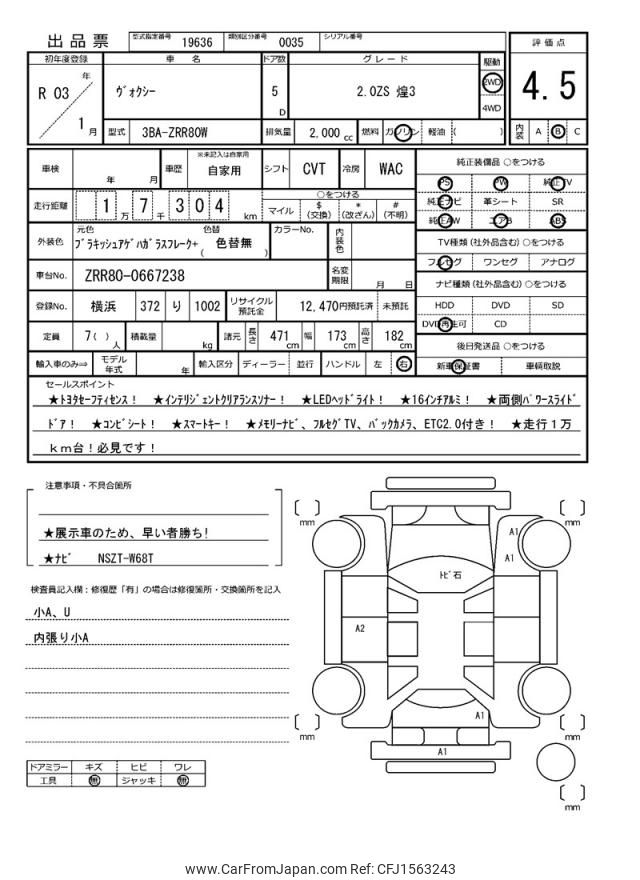 出品票
型式指定番号 19636 類別区分番号 0035 シリアル番号
初年度登録 車名 ドア数 グレード 駆動 評価点
R 03 年 1 月
ヴォクシー
5 D
2.0ZS 煌3
2WD
4WD
4.5
型式 3BA-ZRR80W 排気量 2,000 cc 燃料 ガソリン 軽油 ( )
内装 A B C
車検 年 月 車歴 ※未記入は自家用 自家用 シフト CVT 冷房 WAC
走行距離 1 万 7 千 3 0 4 km
○をつける
マイル $ (交換) * (改ざん) # (不明)
外装色 元色 ブラキッシュアゲハガラスフレーク+ 色替 ( 色替無 ) カラーNo. 内装色
車台No. ZRR80-0667238 名変期限 月 日
登録No. 横浜 372 り 1002 リサイクル預託金 12,470 円預託済 未預託
定員 7( ) 人 積載量 kg 諸元 長さ 471 cm 幅 173 cm 高さ 182 cm
輸入車のみ⇒ モデル年式 年 輸入区分 ディーラー 並行 ハンドル 左 右
純正装備品 ○をつける
PS PW 純正TV
純正ナビ 革シート SR
純正AW エアB ABS
TV種類 (社外品含む) ○をつける
フルセグ ワンセグ アナログ
ナビ種類 (社外品含む) ○をつける
HDD DVD SD
DVD再生可 CD
後日発送品 ○をつける
新車保証書 車輌取説
セールスポイント
★トヨタセーフティセンス! ★インテリジェントクリアランスソナー! ★LEDヘッドライト! ★16インチアルミ! ★両側パワースライド
ドア! ★コンビシート! ★スマートキー! ★メモリーナビ、フルセグTV、バックカメラ、ETC2.0付き! ★走行1万
km台!必見です!
注意事項・不具合箇所
★展示車のため、早い者勝ち!
★ナビ NSZT-W68T
検査員記入欄:修復歴「有」の場合は修復箇所・交換箇所を記入
小A、U
内張り小A
ドアミラー キズ ヒビ ワレ
工具 無 ジャッキ 無
mm
mm
A1
A1
トビ石
A2
A1
mm
mm
A1
mm
www.CarFromJapan.com Ref: CFJ1563243